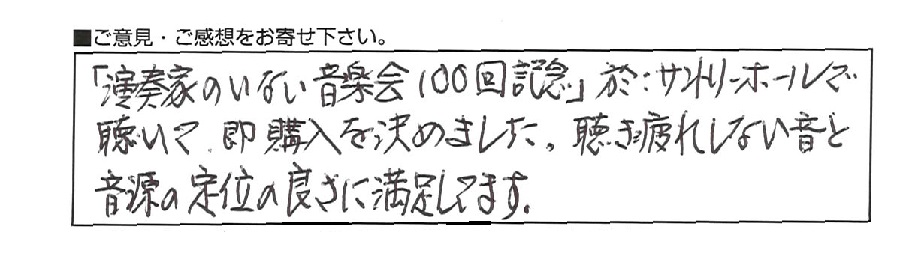 ■ご意見・ご感想をお寄せ下さい。
「演奏家のいない音楽会100回記念」於:サントリーホールで
聴いて、即購入を決めました。聴き疲れしない音と
音源の定位の良さに満足してます。